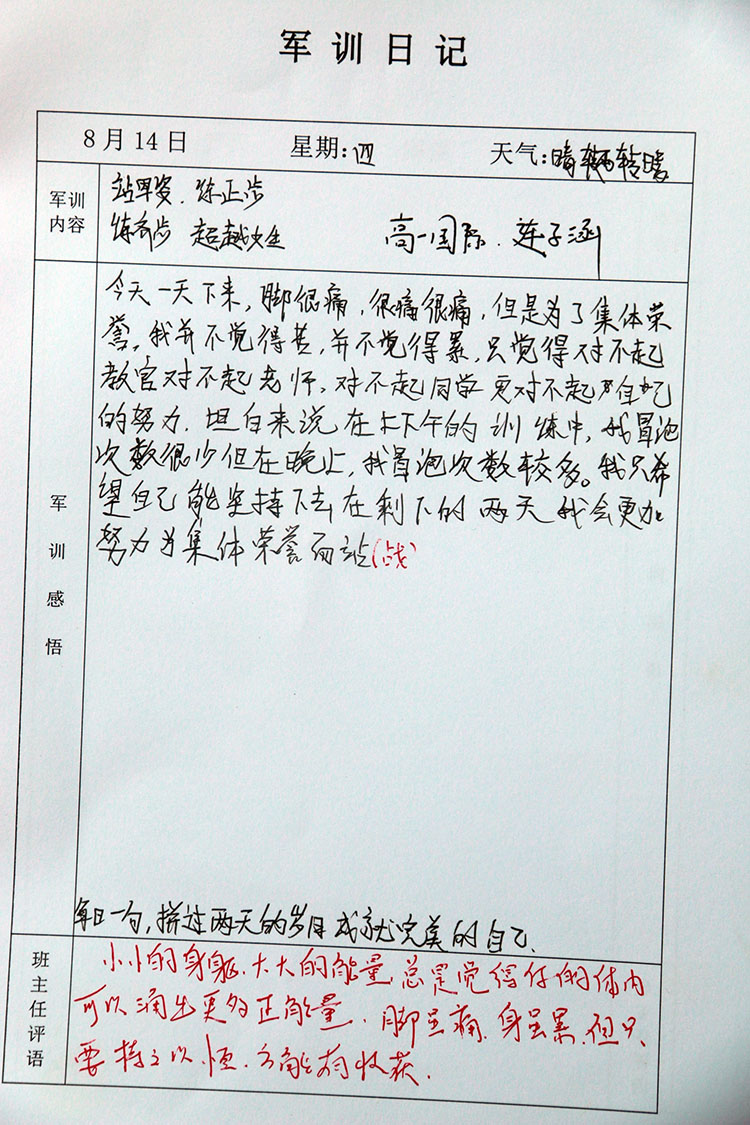 军训日记
8月14日 星期:四 天气:晴转雨转晴
军训内容
站军姿.练正步
练齐步 超越人生 高一国际.连子涵
军训感悟
今天一天下来,脚很痛,很痛很痛,但是为了集体荣
誉,我并不觉得苦,并不觉得累,只觉得对不起
教官对不起老师,对不起同学更对不起自己
的努力.坦白来说在上下午的训练中,我冒泡
次数很少但在晚上,我冒泡次数较多。我只希
望自己能坚持下去,在剩下的两天我会更加
努力为集体荣誉而站(战)
每日一句,拼过两天的岁月成就完美的自己.
班主任评语
小小的身躯.大大的能量,总是觉得你的体内
可以涌出更多正能量.脚虽痛.身虽累.但只
要持之以恒.方能有收获.